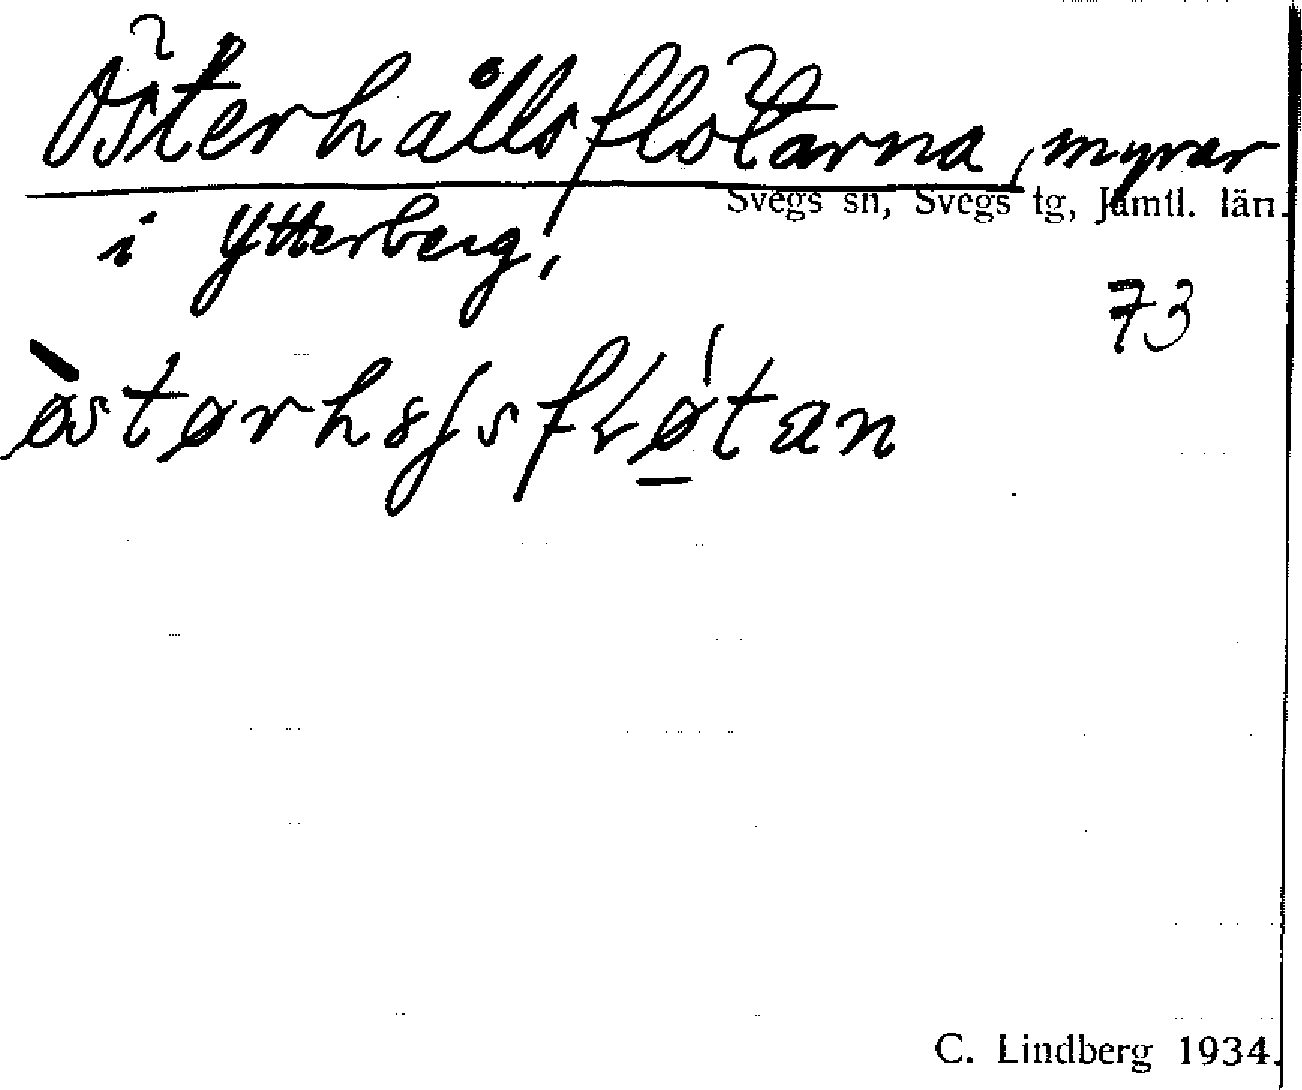 Österhållsflötarna, myrar
Svegs sn, Svegs tg, Jämtl. län.
i Ytterberg.
73
C. Lindberg 1934.